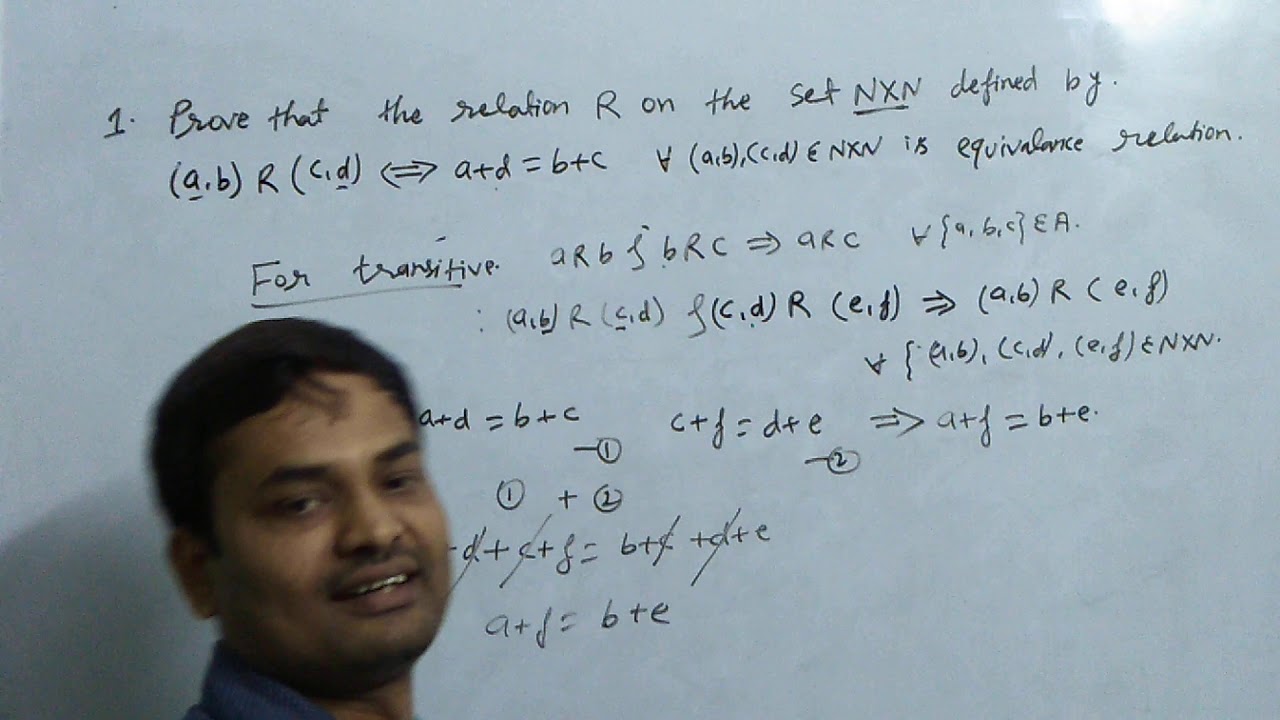 1. Prove that the relation R on the set NXN defined by.
(a,b) R (c,d) ⟺ a+d = b+c ∀ (a,b),(c,d) ∈ NXN is equivalance relation.
For transitive. aRb & bRc ⇒ aRc ∀ {a,b,c} ∈ A.
: (a,b) R (c,d) & (c,d) R (e,f) ⇒ (a,b) R (e,f)
∀ { (a,b), (c,d), (e,f) ∈ NXN.
a+d = b+c c+f = d+e ⇒ a+f = b+e.
—① —②
① + ②
d+c+f = b+c+d+e
a+f = b+e